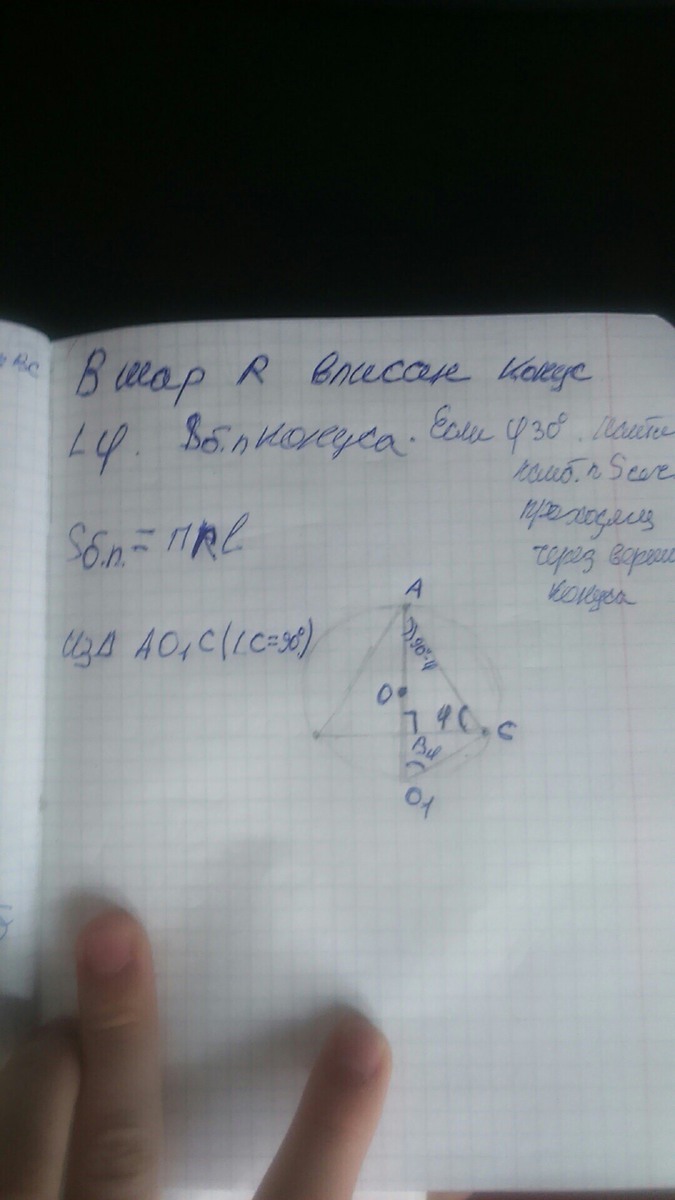 В шар R вписан конус
∠φ. Sб.п конуса. Если φ 30°. Найти
наиб. п Sсеч
проходящ
через верш
конуса
Sб.п. = πRl
Из Δ AO₁C (∠C=90°)
A
90°-φ
O
φ
C
B
φ
O₁